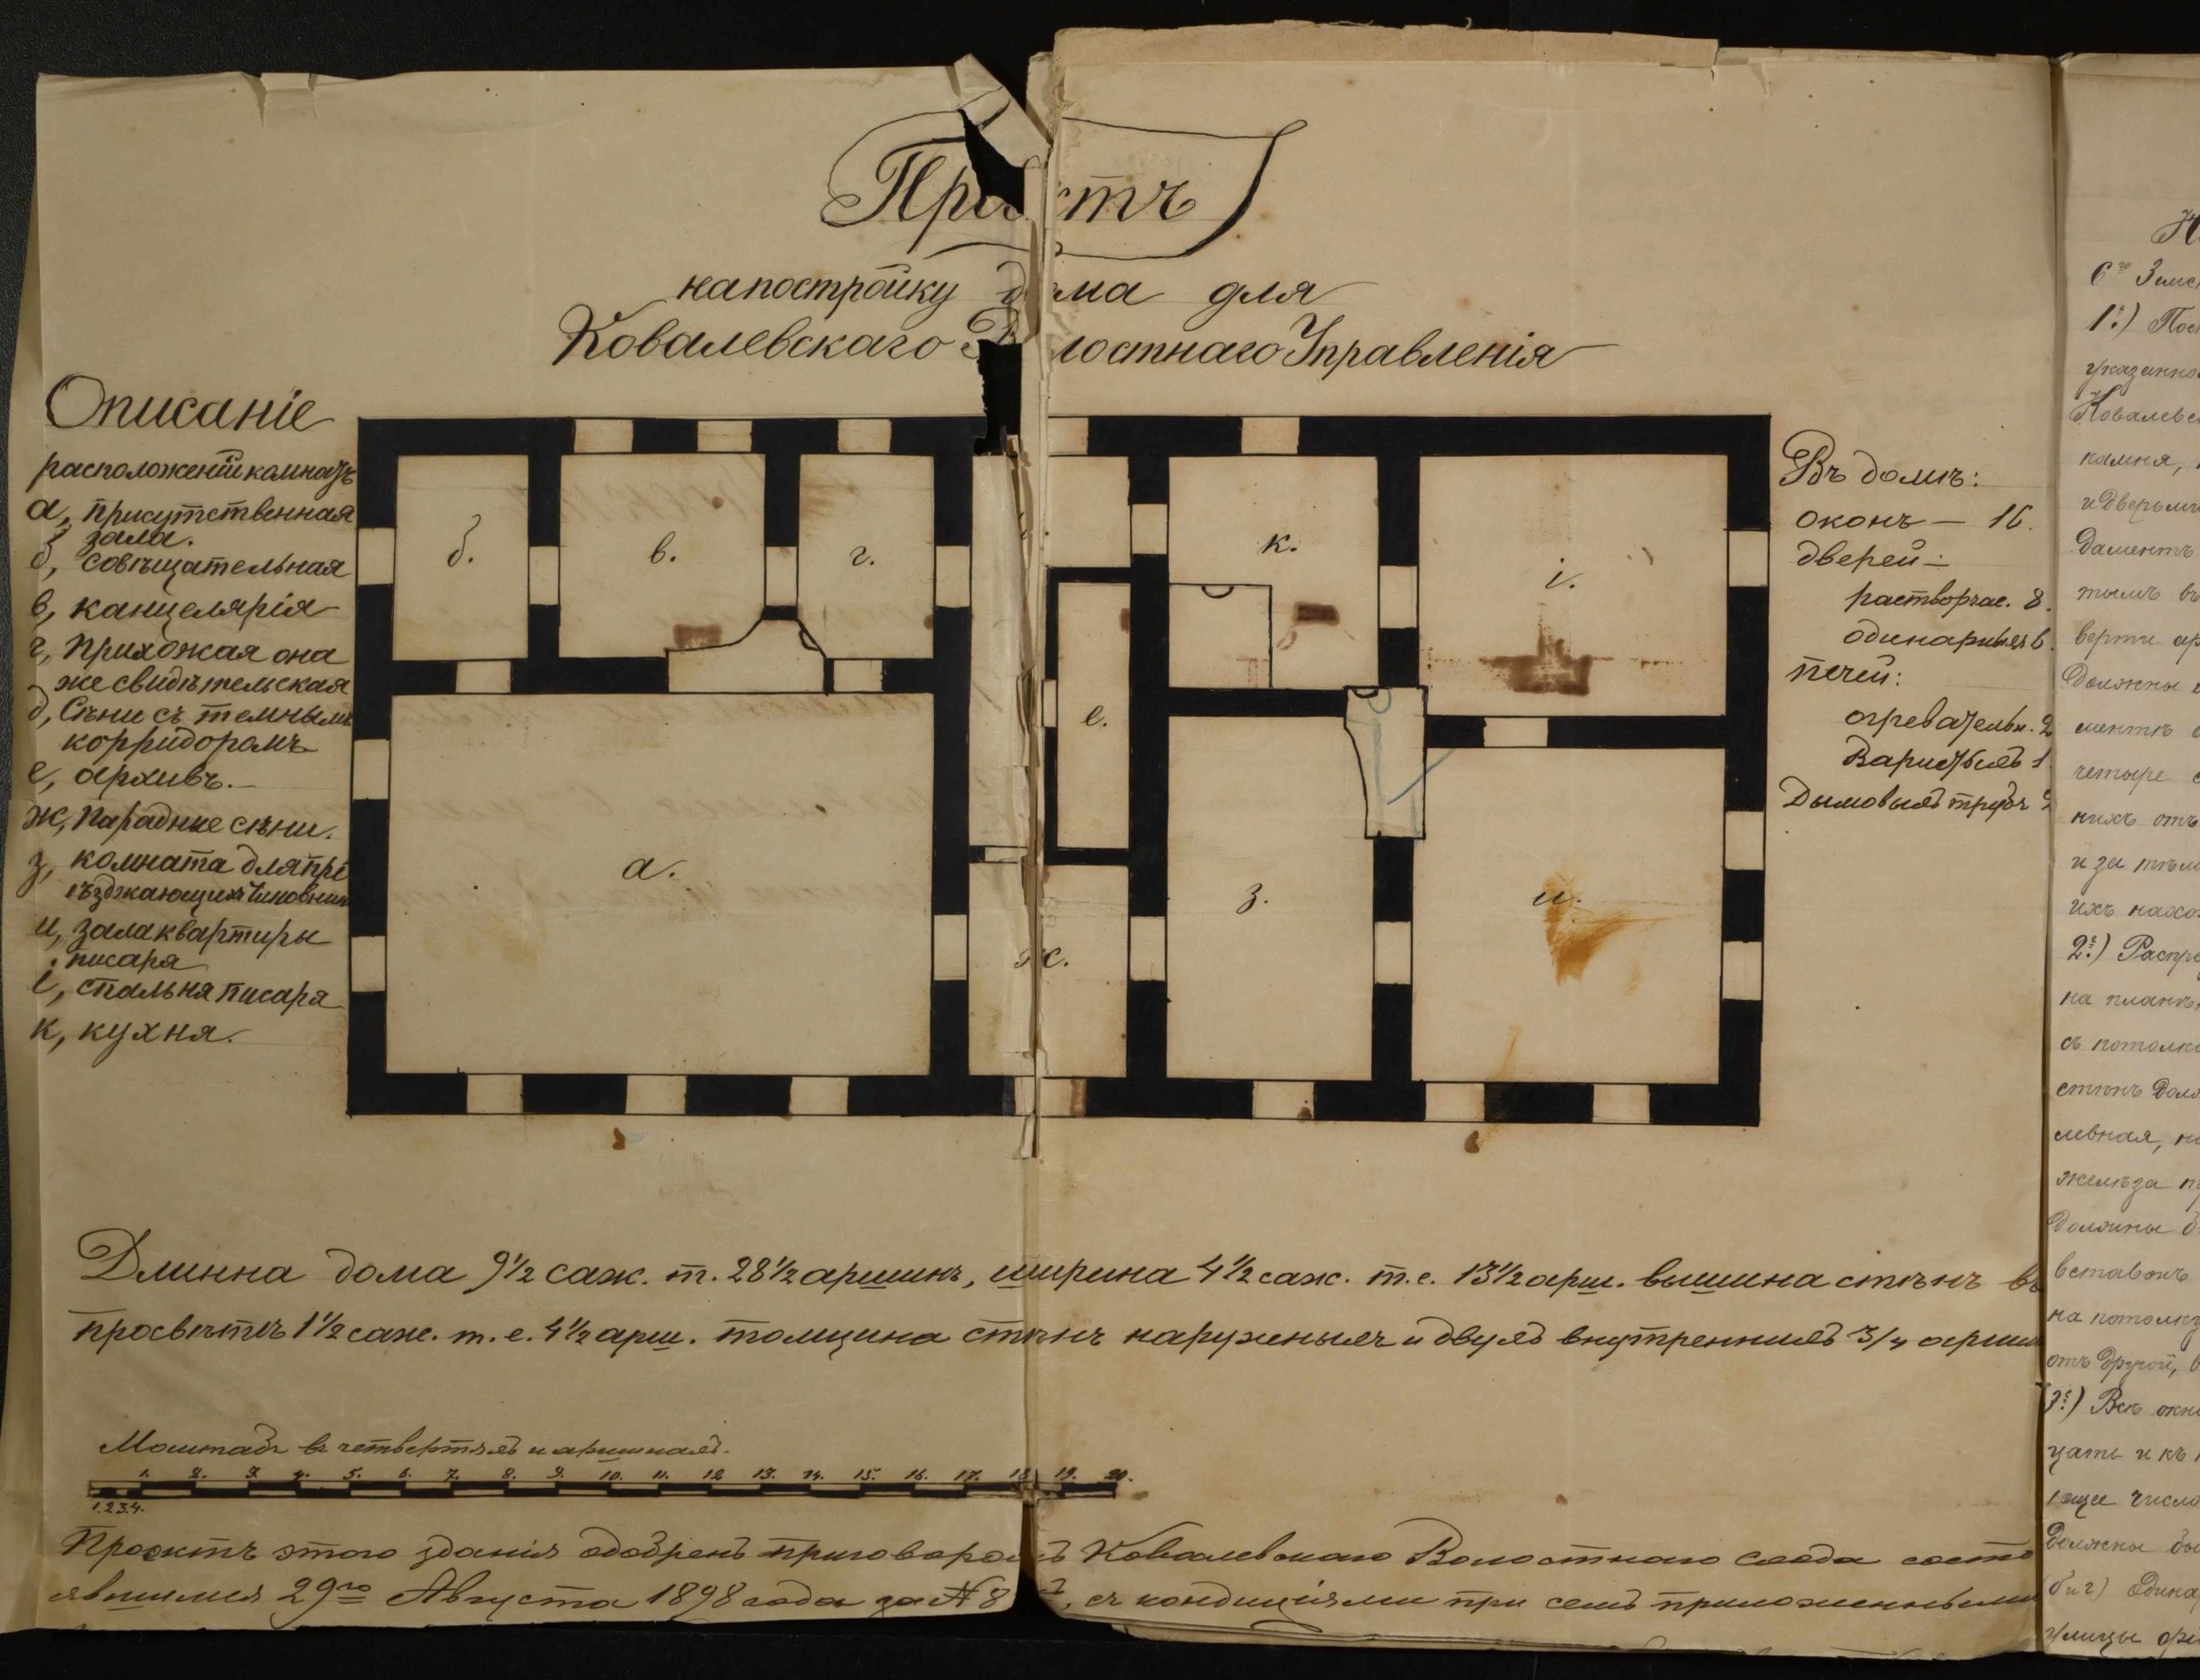 Проэктъ
на постройку дома для
Ковалевскаго Волостнаго Управленія
Описаніе
расположеній комнатъ
а, присутственная
зала.
б, совѣщательная
в, канцелярія
г, Прихожая она
же свидѣтельская
д, Сѣни съ темнымъ
корридоромъ
е, архивъ.
ж, парадные сѣни.
з, комната для прі
ѣзджающихъ чиновник
и, зала квартиры
писаря
і, спальня писаря
к, кухня.
б.
в.
г.
к.
і.
е.
а.
ж.
з.
и.
Въ домѣ:
оконъ — 16.
дверей —
растворчат. 8.
одинарныхъ 6.
печей:
огревательн. 2
Варистыхъ 1
Дымовыхъ трубъ
Длинна дома 9 1/2 саж. т. 28 1/2 аршинъ, ширина 4 1/2 саж. т.е. 13 1/2 арш. вышина стѣнъ въ
просвѣтѣ 1 1/2 саж. т.е. 4 1/2 арш. толщина стѣнъ наружныхъ и двухъ внутреннихъ 3/4 аршин
Маштабъ въ четвертяхъ и аршинахъ.
1. 2. 3. 4. 5. 6. 7. 8. 9. 10. 11. 12. 13. 14. 15. 16. 17. 18. 19. 20.
1.2.3.4.
Проэктъ этого зданія одобренъ приговоромъ Ковалевскаго Волостнаго схода состо
явшимся 29го Августа 1898 года за № 8, съ кондиціями при семъ приложенными
6го Земс
1е) Пос
указанно
Ковалевс
камня,
и дверьми
даментъ
тымъ въ
верти ар
Должны
ментъ
четыре с
нихъ отъ
и за тѣм
ихъ нахо
2е) Распре
на планѣ,
съ потолк
стѣнъ Дол
левная, н
желѣза п
Должны б
вставокъ
на потолк
отъ другой, в
3е) Всѣ окн
цать и къ
ющее число
Должны бы
(б и г) Одина
улицы